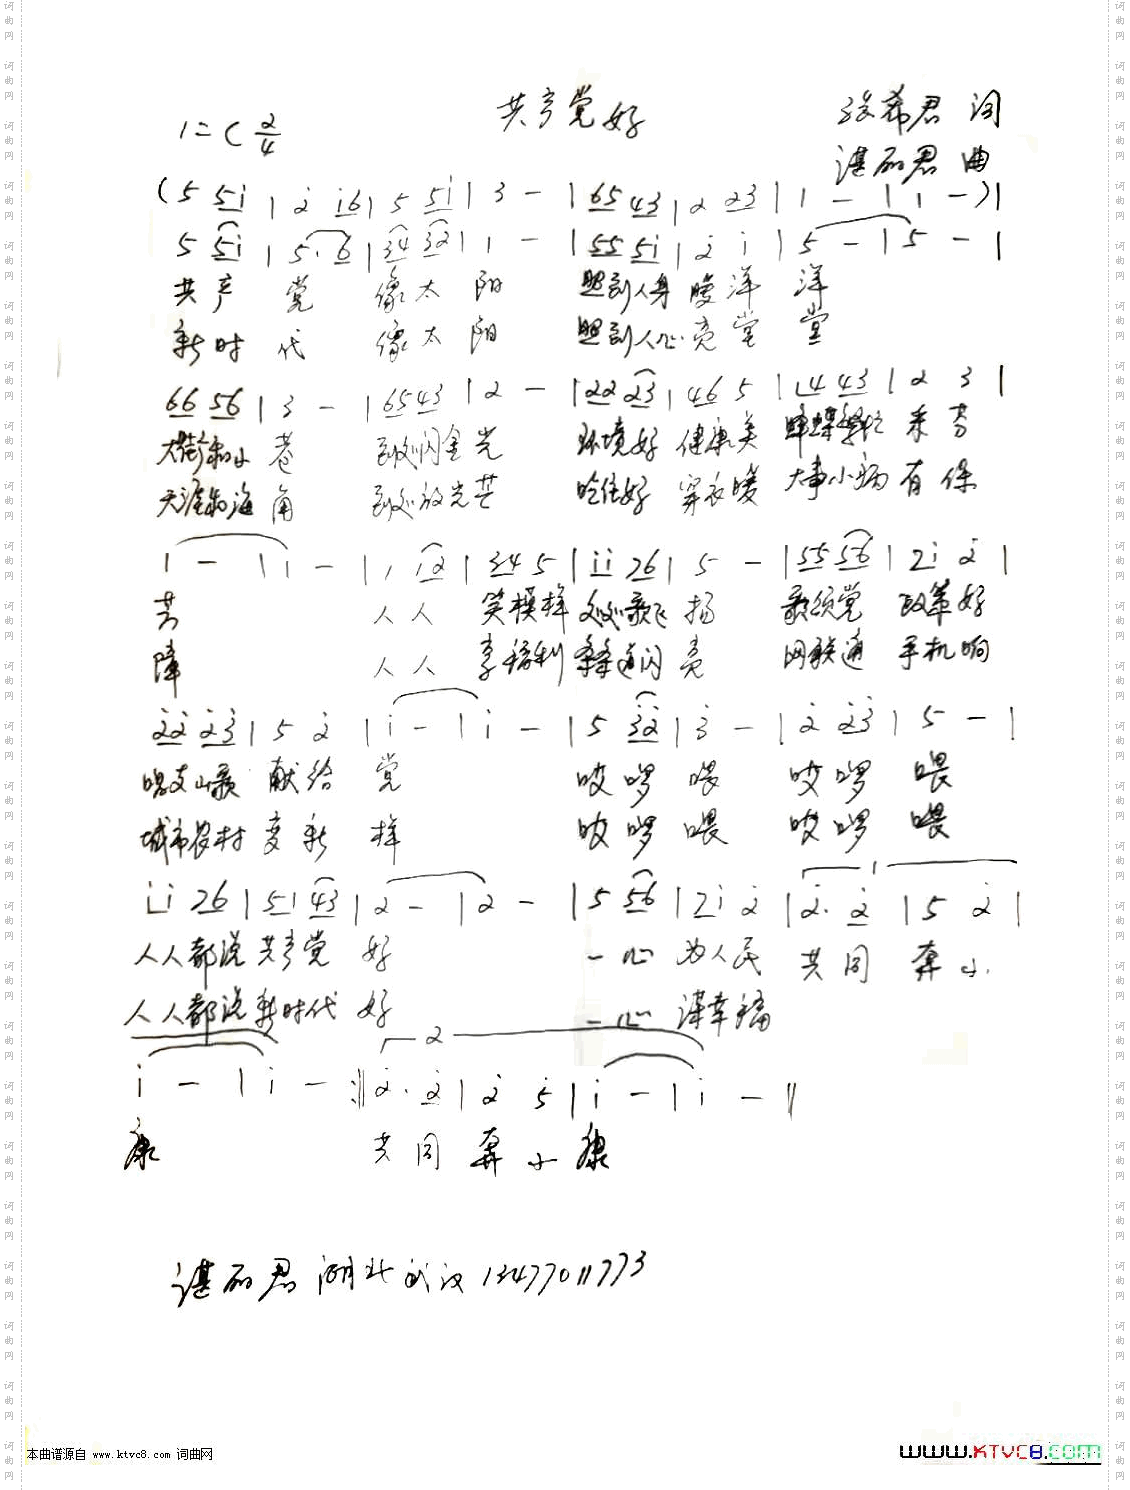 共产党好
1=C 2/4
张希君 词
谌丽君 曲
(5 5i | 2 i6 | 5 5i | 3 - | 65 43 | 2 23 | 1 - | 1 -)|
5 5i | 5·6 | 34 32 | 1 - | 55 5i | 2 i | 5 - | 5 - |
共产 党 像太 阳 照到人身 暖洋 洋
新时 代 像太 阳 照到人心 亮堂 堂
66 56 | 3 - | 65 43 | 2 - | 22 23 | 46 5 | 14 43 | 2 3 |
大街和小 巷 到处闪金光 环境好 健康美 采芬
天涯和海 角 到处放光芒 吃住好 穿衣暖 大事小病 有保
1 - | 1 - | 1 12 | 34 5 | ii 26 | 5 - | 55 56 | 2i 2 |
芳 人人 笑模样 处处歌飞 扬 歌颂党 改革好
障 人人 享福利 条条道闪 亮 网联通 手机响
22 23 | 5 2 | i - | i - | 5 32 | 3 - | 2 23 | 5 - |
唱支山歌 献给 党 哎啰 喂 哎啰 喂
城市农村 变新 样 哎啰 喂 哎啰 喂
ii 26 | 51 43 | 2 - | 2 - | 5 56 | 2i 2 | 2· 2 | 5 2 |
人人都说 共产党 好 一心 为人民 共同 奔小
人人都说 新时代 好 一心 谋幸福
i - | i - :‖ 2· 2 | 2 5 | i - | i - ‖
康 共同 奔小 康
谌丽君 湖北武汉 13477011773
本曲谱源自 www.ktvc8.com 词曲网
www.KTVC8.com